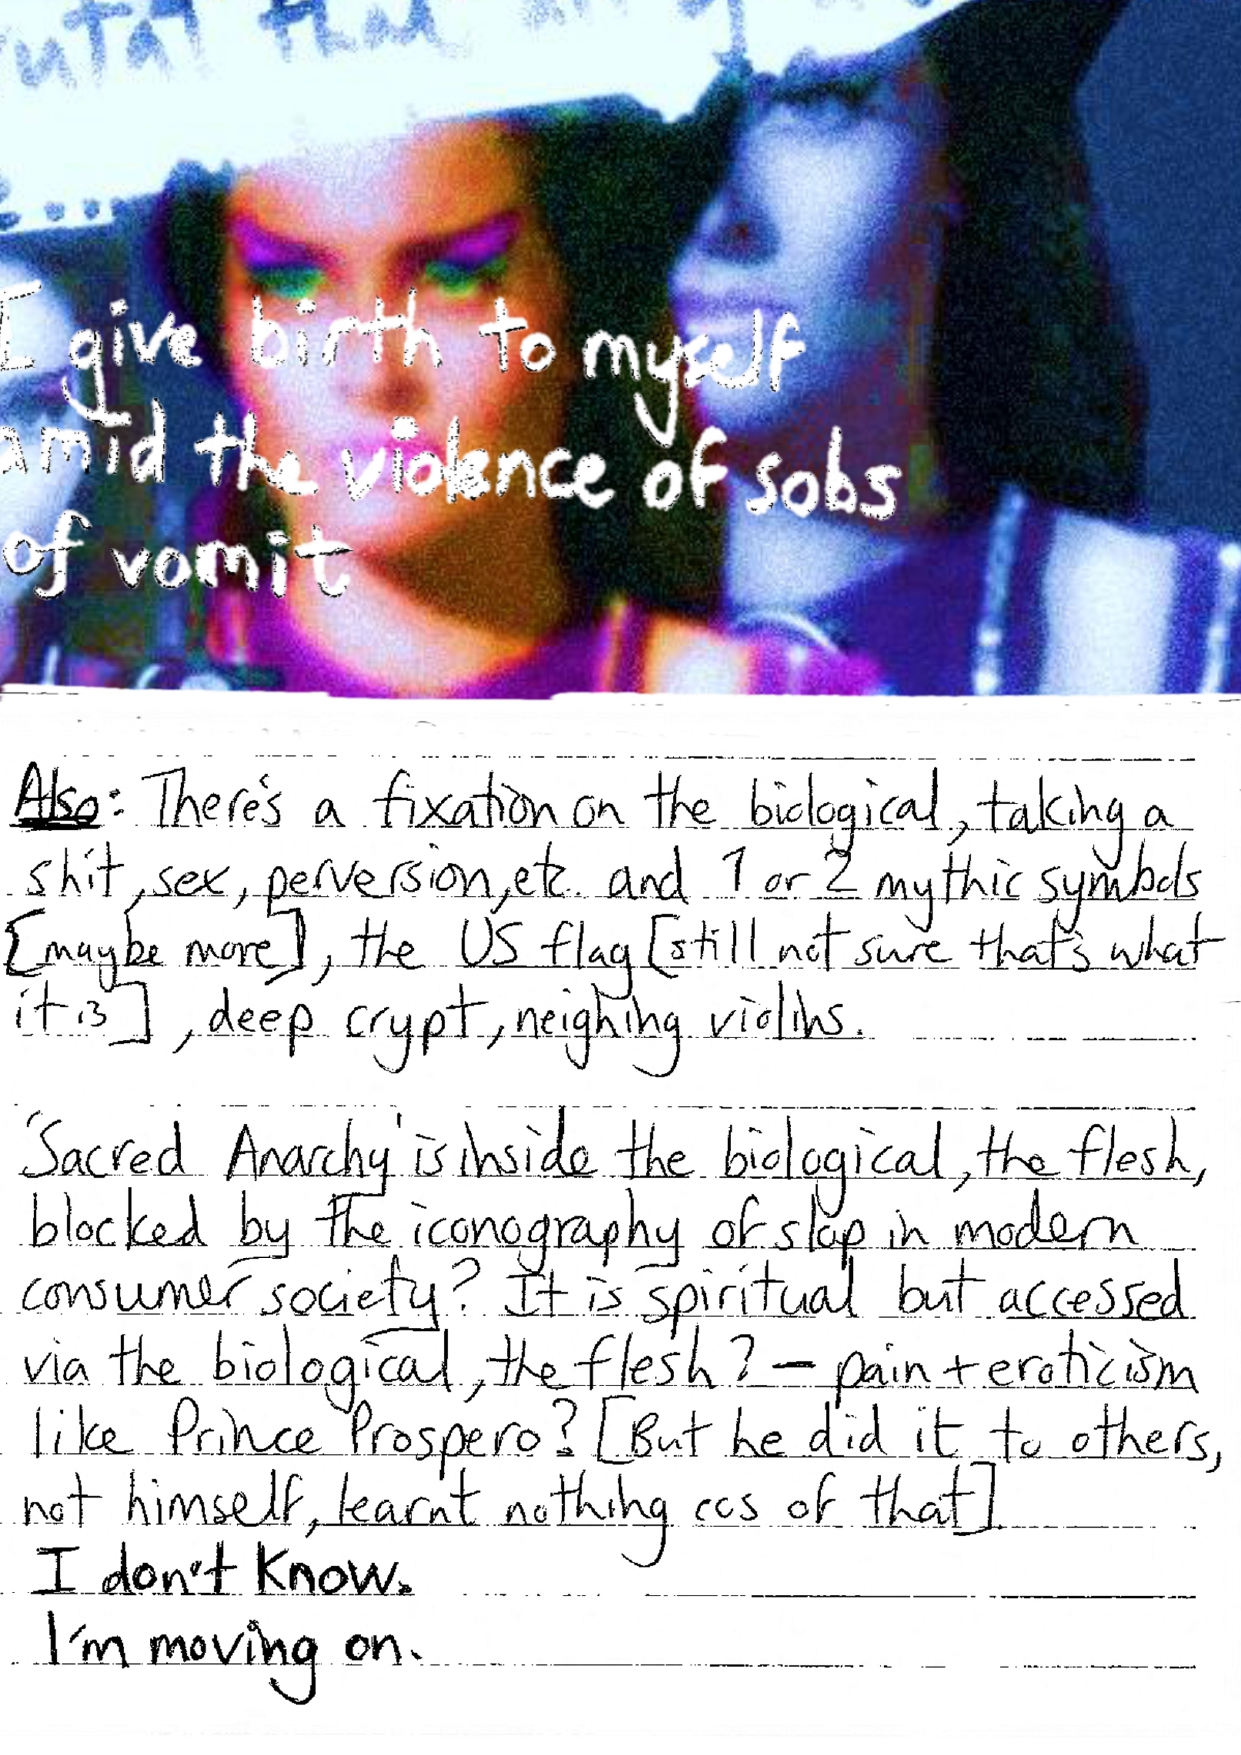 that
...
I give birth to myself
amid the violence of sobs
of vomit
Also: There's a fixation on the biological, taking a
shit, sex, perversion, etc. and 1 or 2 mythic symbols
[maybe more], the US flag [still not sure that's what
it is], deep crypt, neighing violins.
'Sacred Anarchy' is inside the biological, the flesh,
blocked by the iconography of slap in modern
consumer society? It is spiritual but accessed
via the biological, the flesh? – pain + eroticism
like Prince Prospero? [But he did it to others,
not himself, learnt nothing cos of that].
I don't know.
I'm moving on.